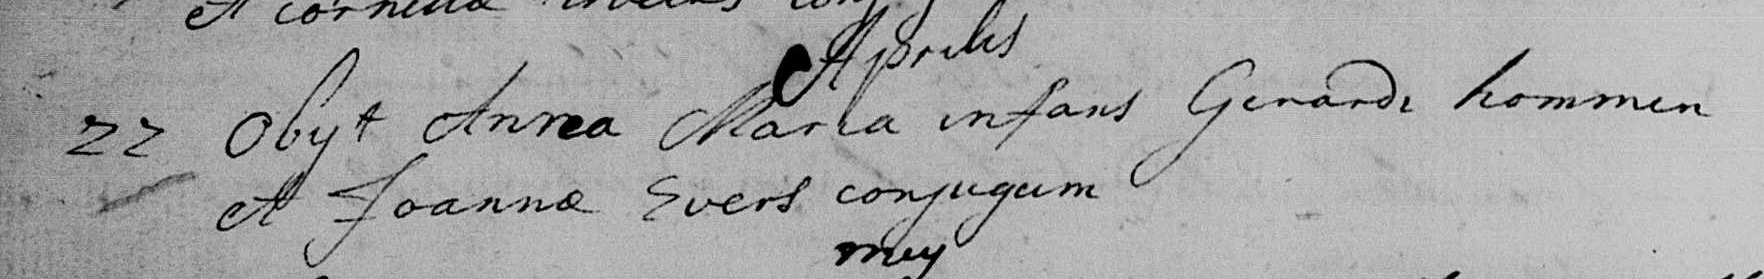 et cornelia
Aprilis
22 Obyt Anna Maria infans Gerardi hommen
et Joannæ Evers conjugum
mey